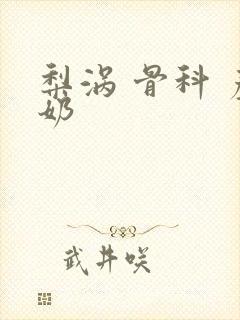 梨涡 骨科
奶
武井咲